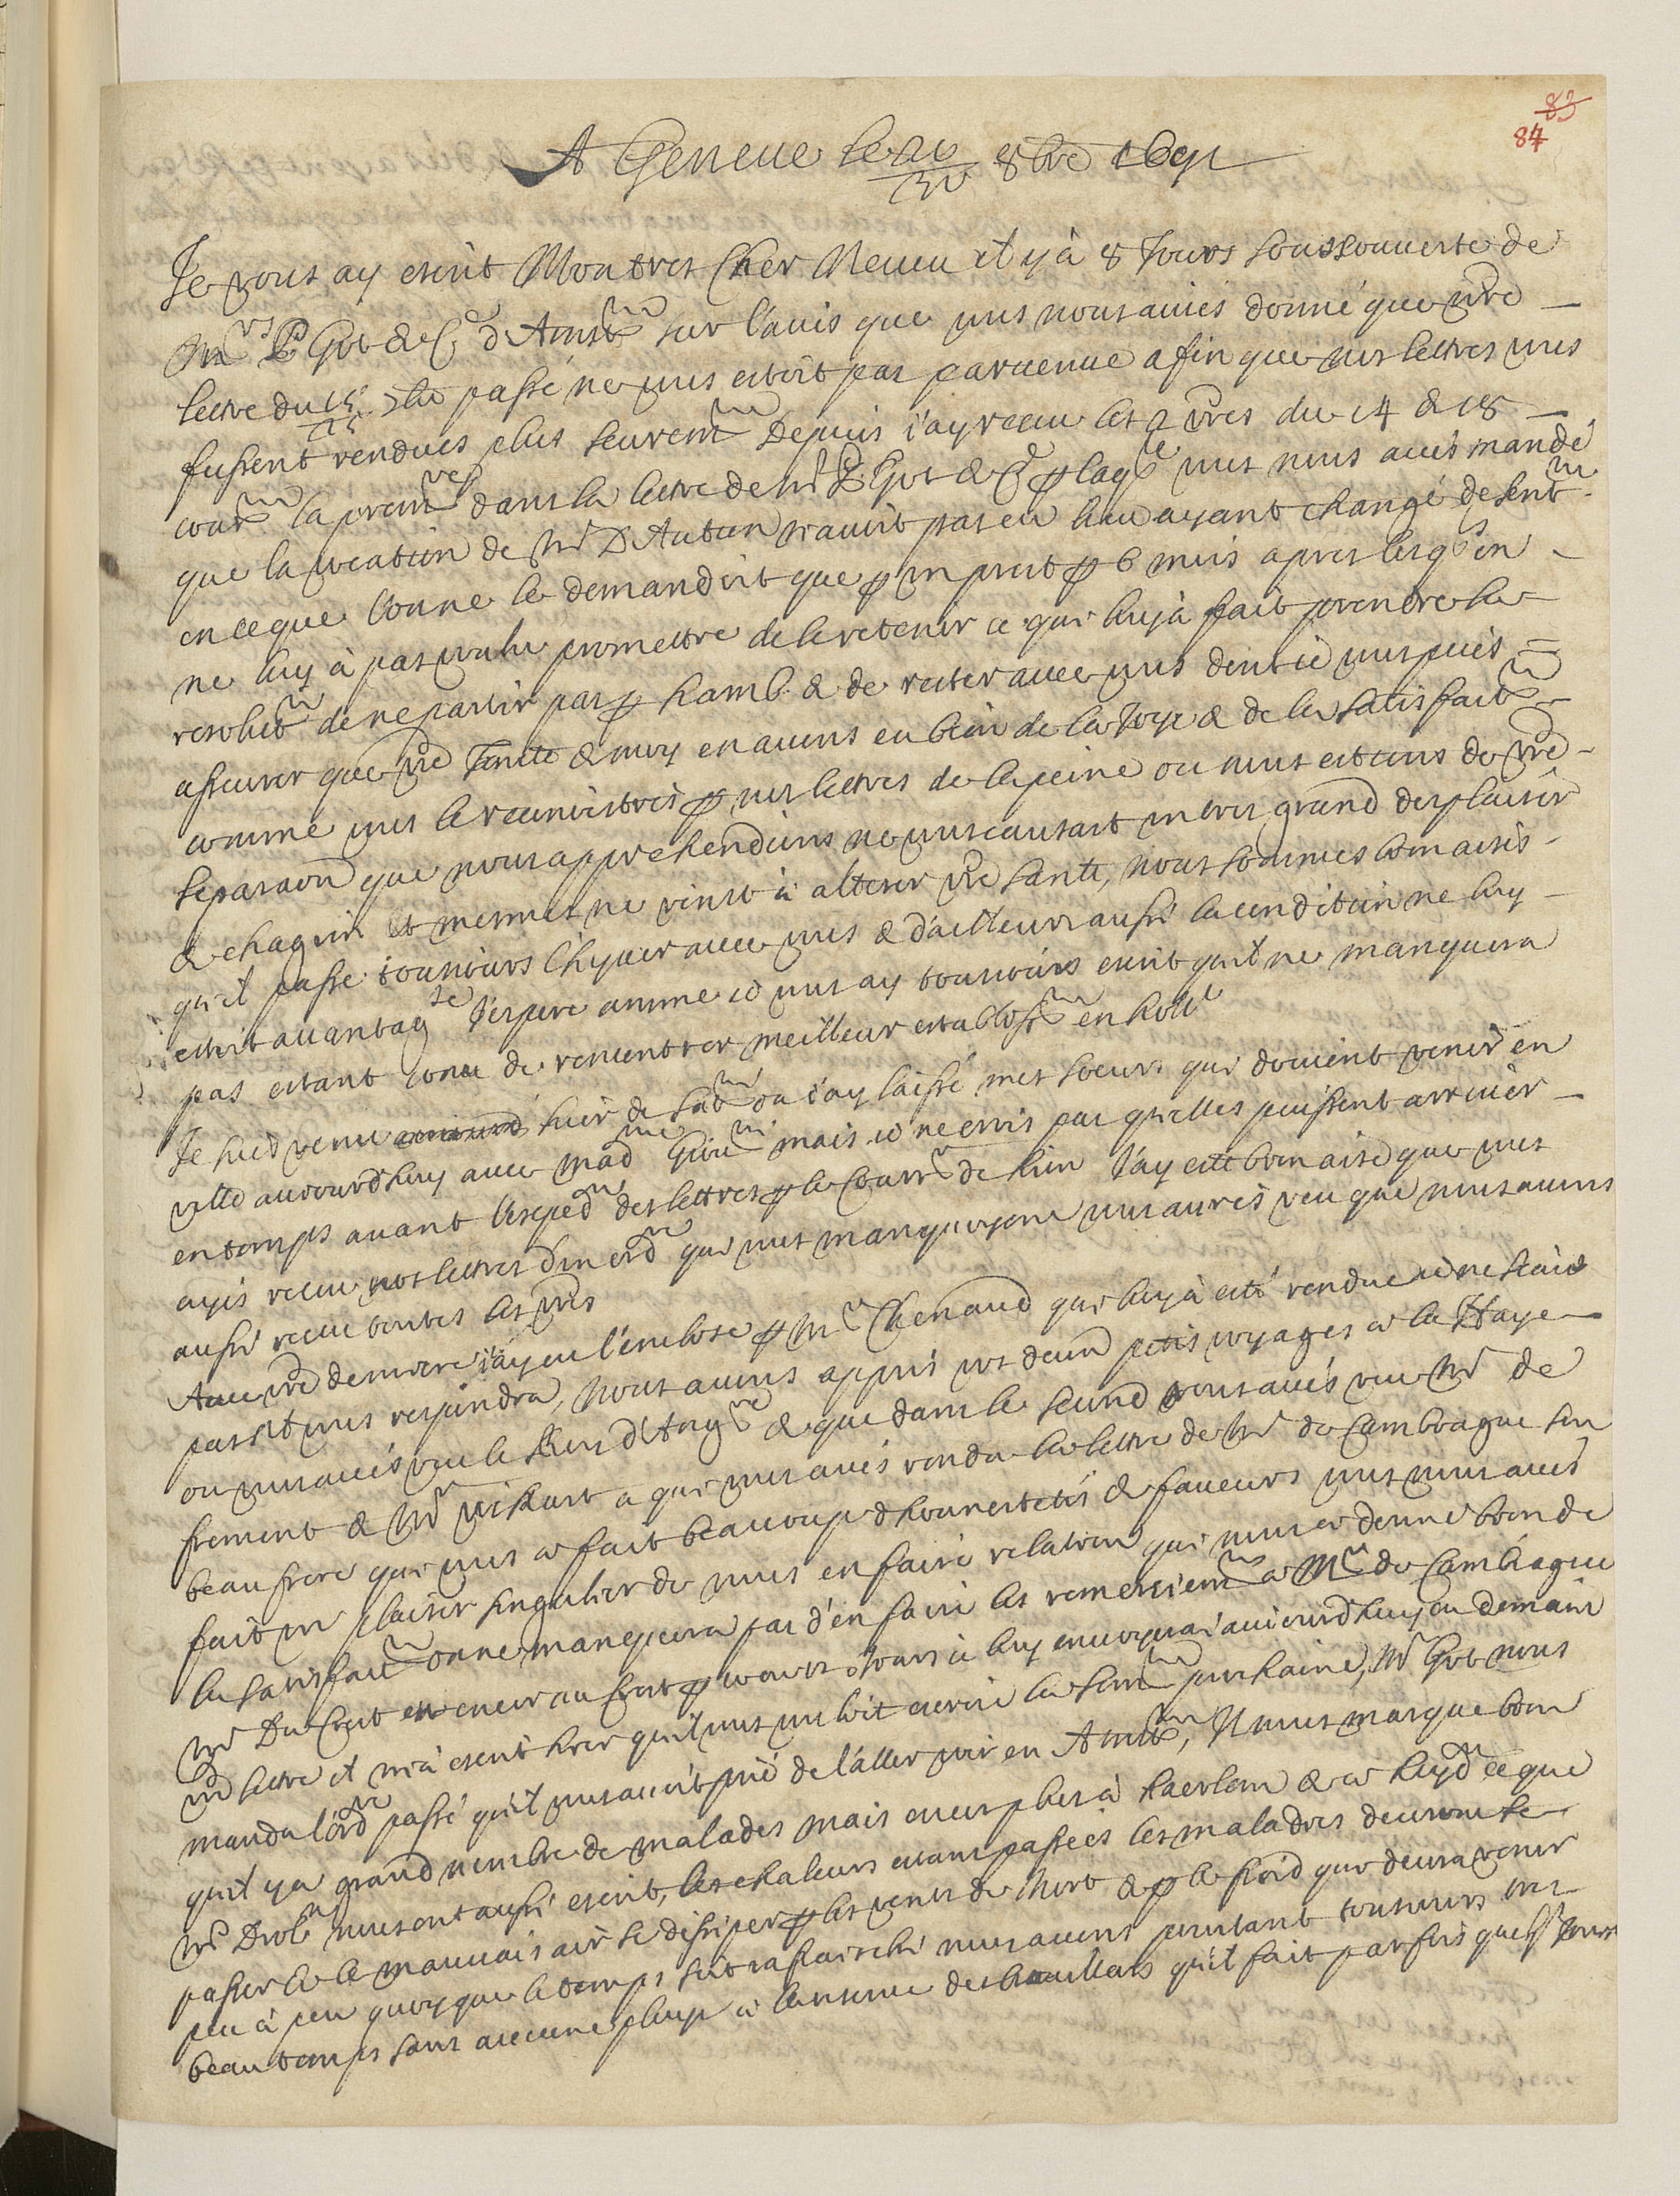 83
84
A Geneue le 20/30 8bre 1691
Je vous ay escrit Mon tres Cher Neueu il y à 8 Jours sous couuerte de
Mrs P Got & C d'Amstm sur l'auis que vous nous auiés donné que vre
lettre du passé ne vous estoit pas paruenue afin que nos lettres vous
fussent rendues plus seuremt Depuis j'ay receu les 2 vres du 14 & 18
court la premre dans la lettre de Mr P Got & C p laqle vous nous aués mandé
que la vocation de Mr D'Autun n'auoit pas eu lieu ayant changé de sentmt
en ce que l'on ne le demandoit que p un prest p 6 mois apres lesqls on
ne luy à pas voulu promettre de le retenir ce qui luy à fait prendre la
resolutn de ne partir pas p hamb. & de rester auec vous dont ie vous puis
asseurer que vre Tante & moy en auons eu bien de la Joye & de la satisfactn
comme vous le reconoistrés p nos lettres de la peine ou nous estions de vre
separaon que nous apprehendions ne vous causast un tres grand desplaisir
& chagrin et mesmes ne vinst à alterer vre santé, nous sommes bien aisés
qu'il passe tousiours l'hyuer auec vous & d'ailleurs aussi la condition ne luy
estoit auantagse J'espere comme ie vous ay tousiours escrit qu'il ne manquera
pas estant conu de rencontrer meilleur establisst en holle
Je suis venu hier de ou j'ay laissé mes soeurs qui doiuent venir en
ville aujourd'huy auec madme mais ie ne crois pas qu'elles puissent arriuer
en temps auant l'expedn des lettres p le Courr de Lion J'ay esté bien aise que vous
ayés receu nos lettres d'un ordre qui vous manquoyent vous aurés veu que nous auons
aussi receu toutes les vres
Auec vre derniere j'ay eu l'encluse p Mr Chenaud qui luy à esté rendue ie ne scais
pas s'il vous respondra, nous auons appris vos deux petis voyages a la Haye
ou vous aués veu le Roy d'Angre & que dans le second vous aués veu Mr de
frement & Mr a qui vous aués rendu la lettre de Mr de Cambiague son
beau frere qui vous a fait beaucoup d'honnestetés & faueurs vous nous aués
fait un plaisir singulier de nous en faire relation qui nous a donné bien de
la satisfactn on ne manquera pas d'en faire les remerciemts a Mr de Cambiague
Mr Du Crest est encor au Crest p encor 8 Jours ie luy enuoyrai aujourd'huy ou demain
vre lettre il m'a escrit hier qu'il vous vouloit escrire la semne prochaine, Mr Got nous
manda l'ordre passé qu'il vous auoit prié de l'aller voir en Amstm, Il nous marque bien
qu'il y a grand nombre de malades mais encor plus à haerlem & a Leyde ce que
Mr nous ont aussi escrit, les chaleurs estans passées les maladies deuront se
passer & le mauuais air se dissiper p les vents de Nort & p le froid qui deura venir
peu à peu quoyque le temps soit rafraischi nous auons pourtant tousiours tres
beau temps sans aucune pluye a la reserue des brouillars qu'il fait par fois quelqs Jours